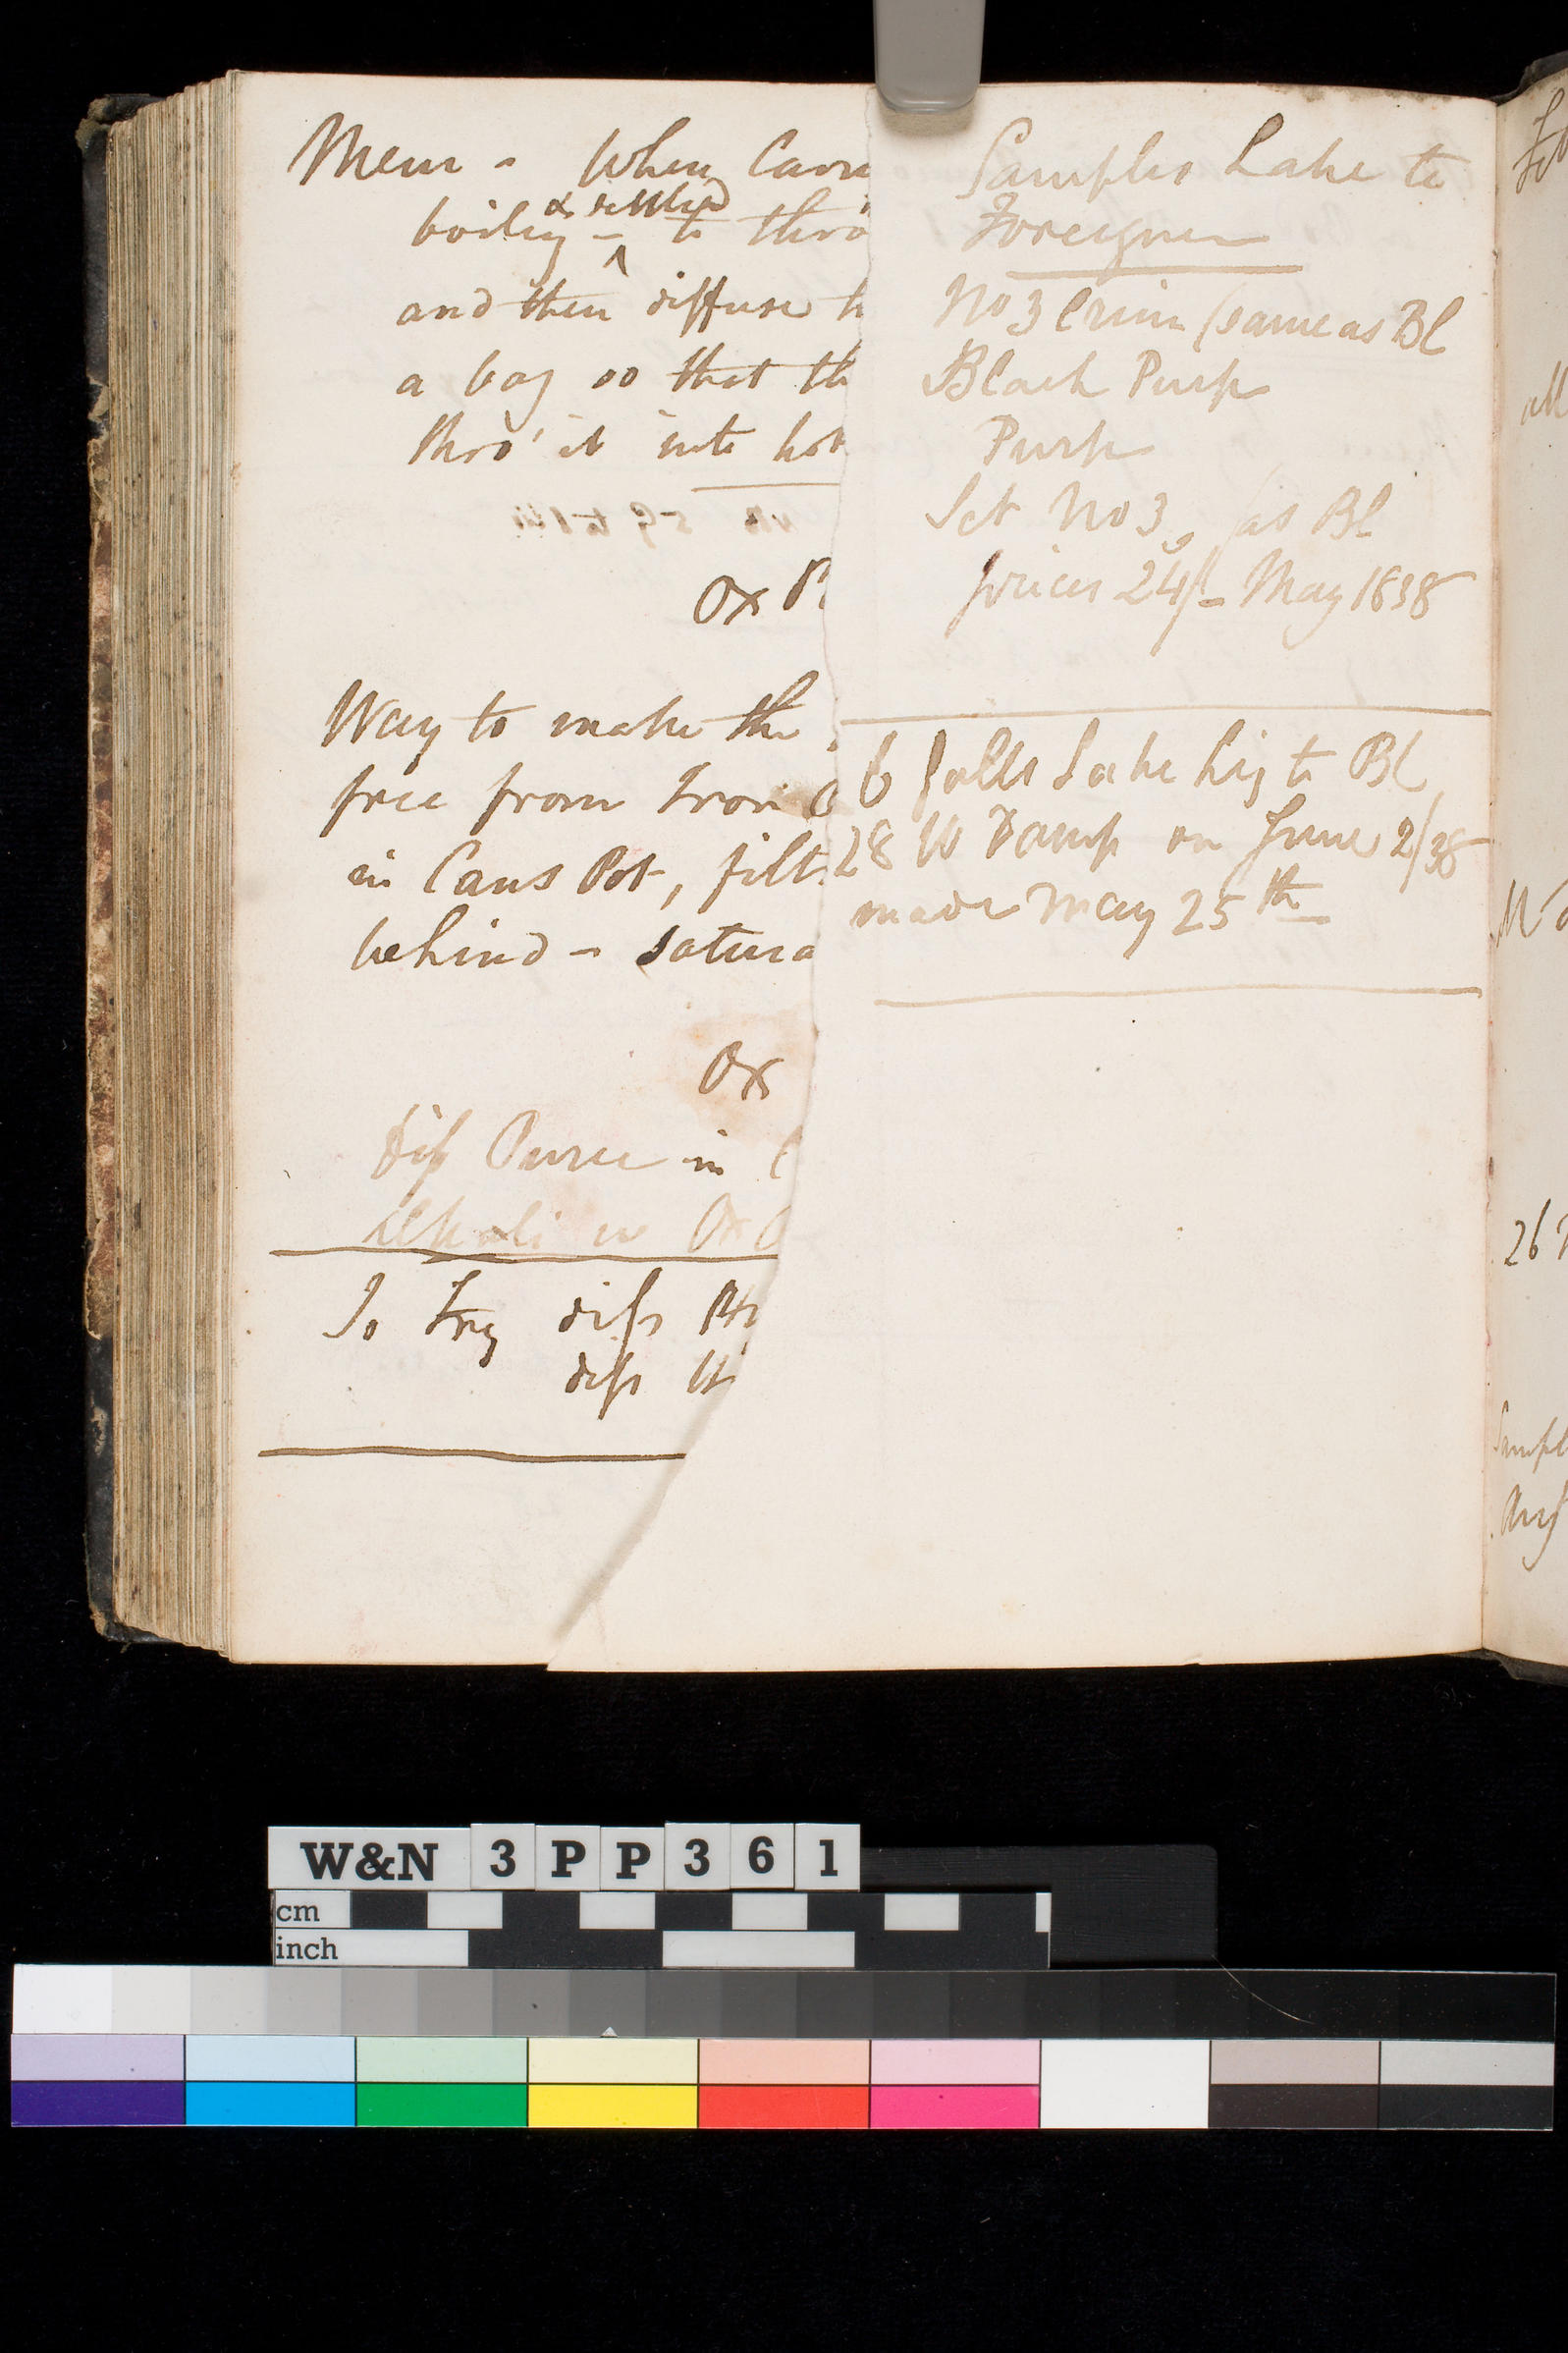 Mem - When Carm
& settled
boiling - to thro
and then diffuse
a bag so that th
thro' it into hot
Ox
Way to make the
free from Iron
in Caus Pot, filt
behind - satura
Ox
Diss Puree in
Alkali w Ox
To Try diss
diss
Samples Lake to
Foreigner
No 3 Crim (same as Bl
Black Purp
Purp
Sct No 3 (as Bl
prices 24/- May 1838
6 galls Lake liq to Bl
28 W Damp on June 2/38
made May 25th
26
Sampl
W&N 3PP361
cm
inch